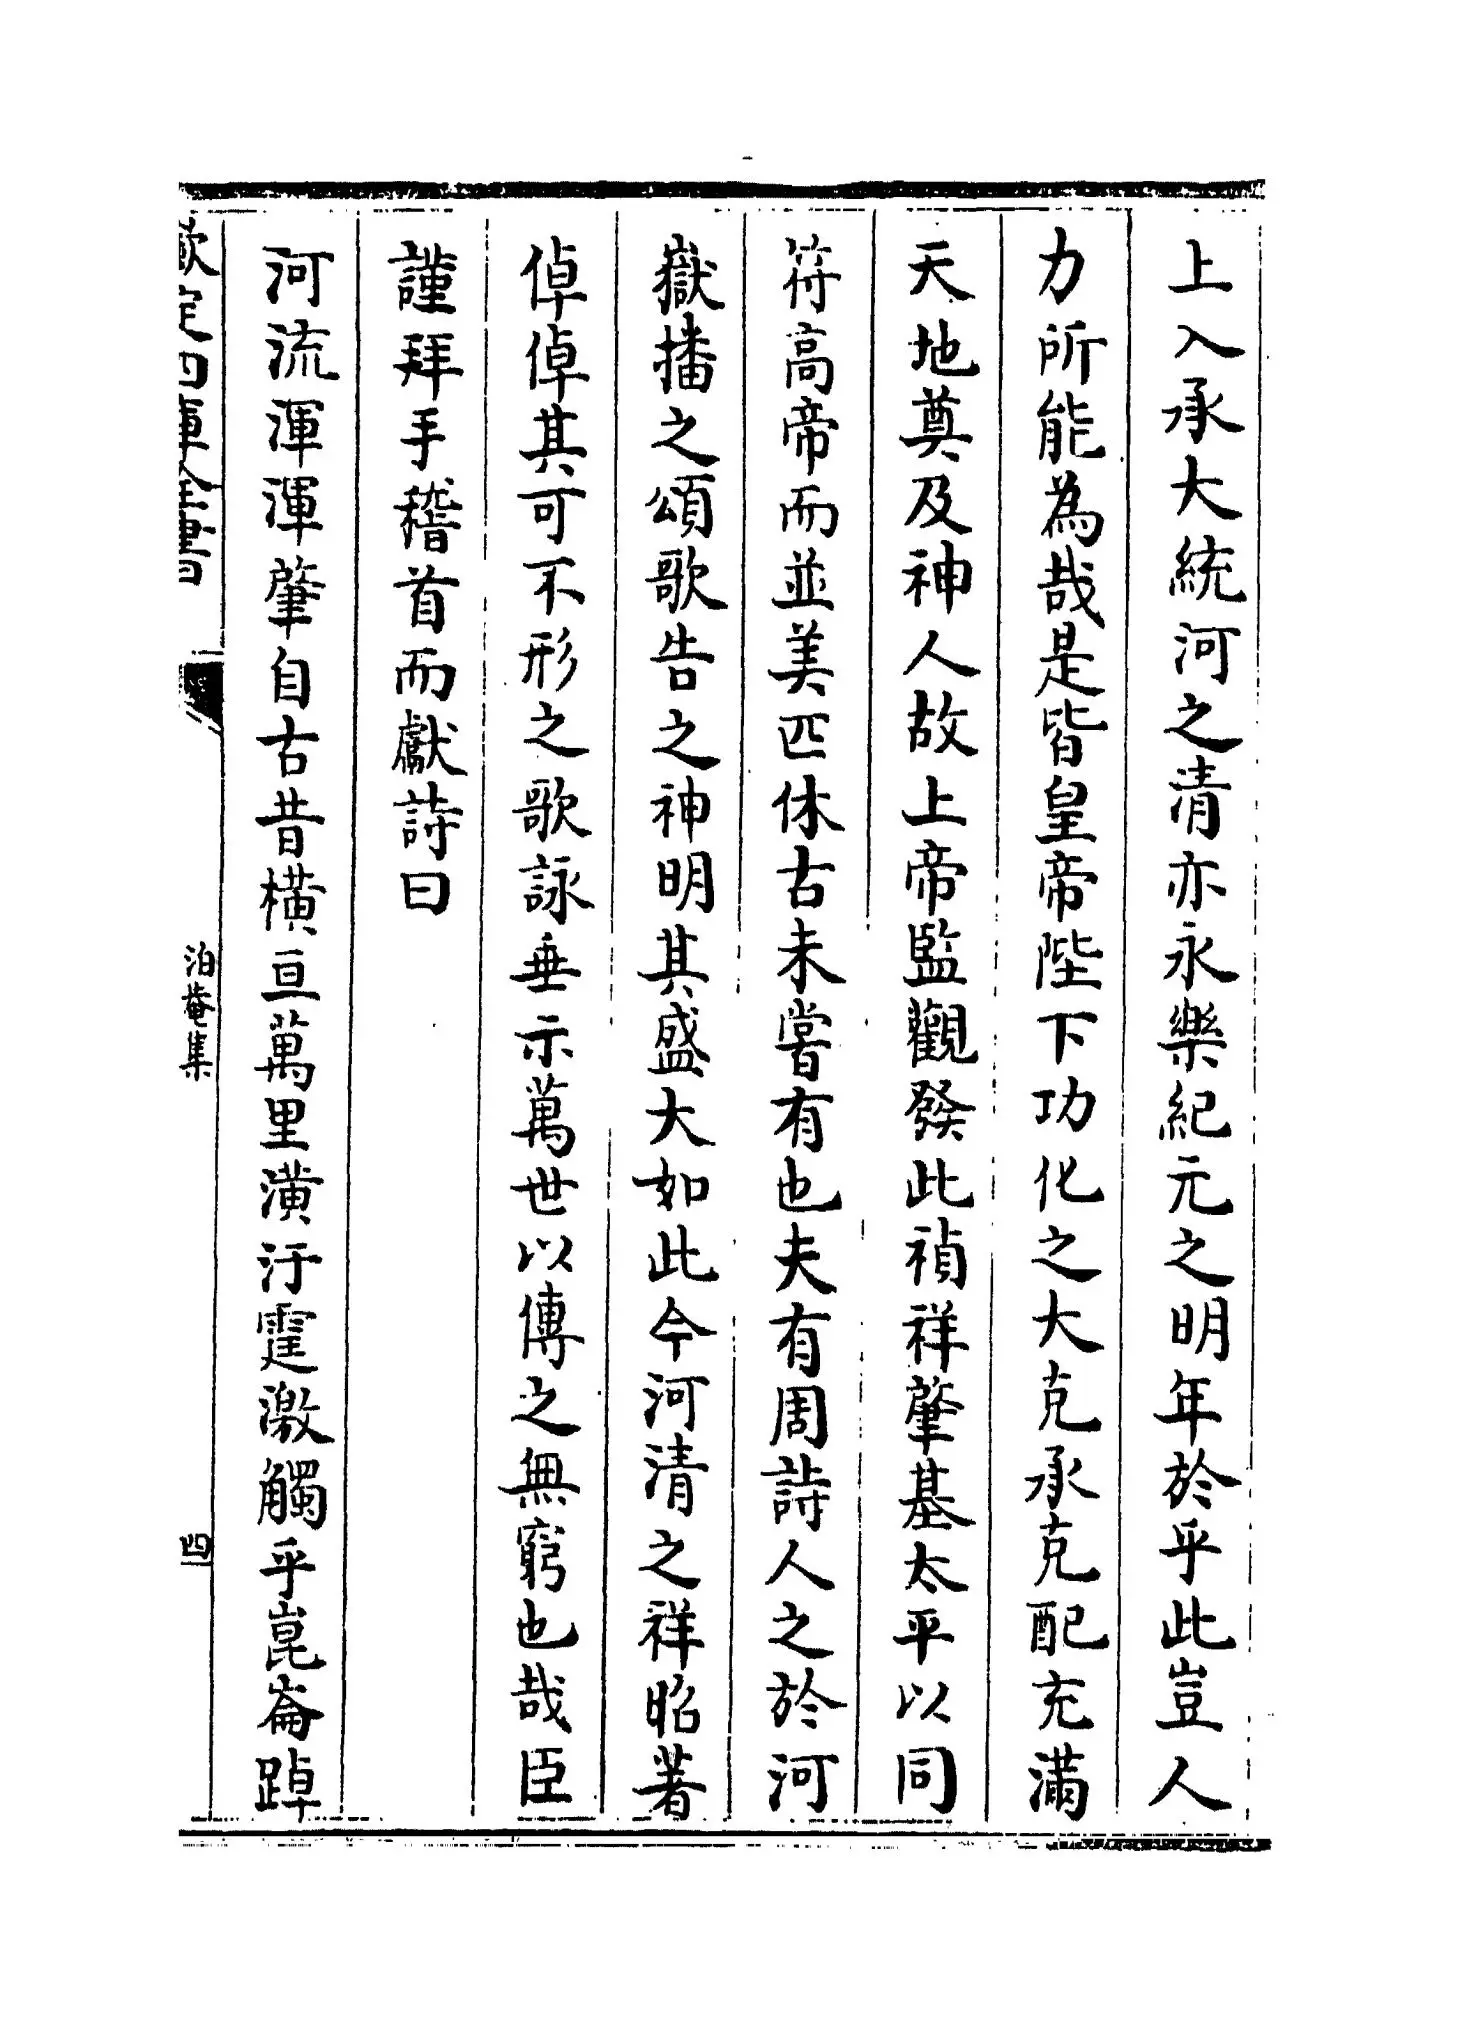 上入承大統河之清亦永樂紀元之明年於乎此豈人
力所能為哉是皆皇帝陛下功化之大克承克配充滿
天地奠及神人故上帝監觀發此禎祥肇基太平以同
符高帝而並美匹休古未嘗有也夫有周詩人之於河
嶽播之頌歌告之神明其盛大如此今河清之祥昭著
倬倬其可不形之歌詠垂示萬世以傳之無窮也哉臣
謹拜手稽首而獻詩曰
河流渾渾肇自古昔橫亘萬里潢汙霆激觸乎崑崙踔
欽定四庫全書
泊菴集
四